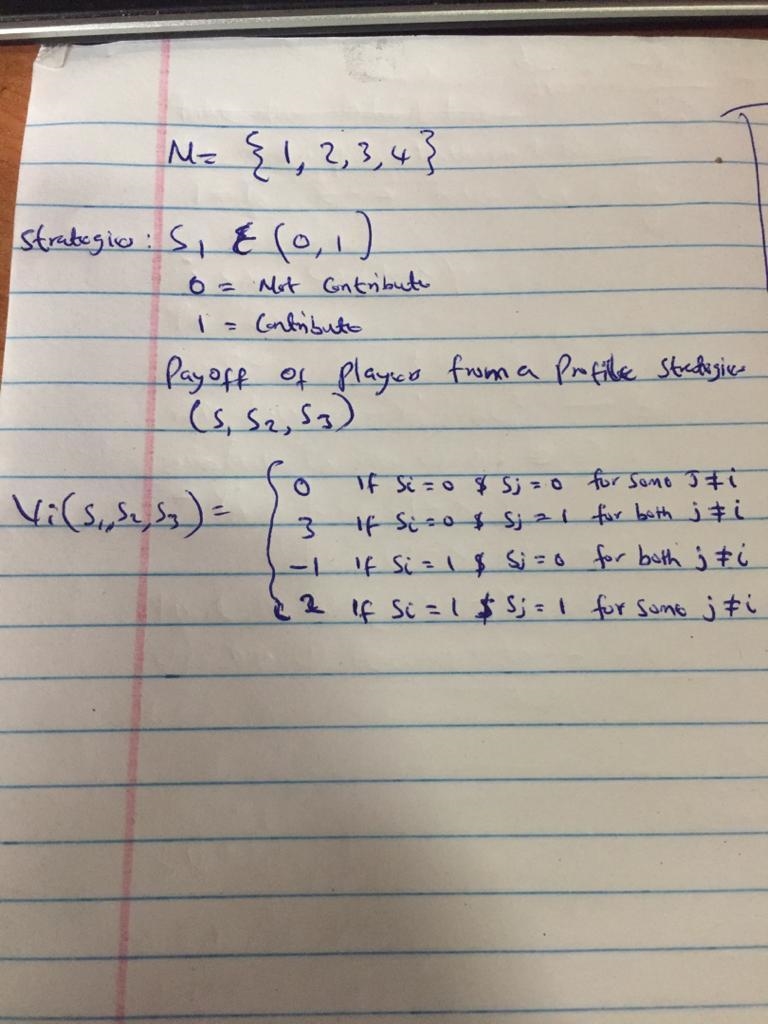 N= { 1, 2, 3, 4 }
Strategies : S1 E (0, 1)
0 = Not Contribute
1 = Contribute
Payoff of players from a Profile Strategies
(S1 S2, S3)
Vi(S1, S2, S3) =
0 If Si = 0 $ Sj = 0 for some j ≠ i
3 If Si = 0 $ Sj = 1 for both j ≠ i
-1 If Si = 1 $ Sj = 0 for both j ≠ i
2 If Si = 1 $ Sj = 1 for some j ≠ i